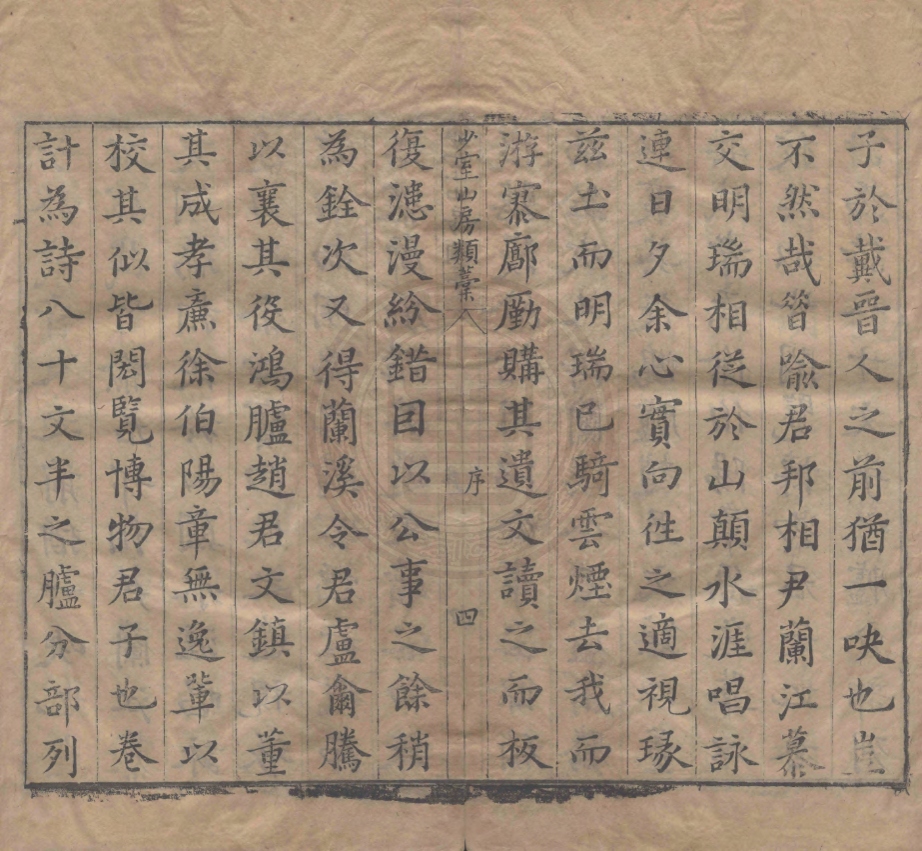 子於戴晉人之前猶一吷也豈
不然哉昝喩君邦相尹蘭江慕
交明瑞相從於山顛水涯唱詠
連日夕余心實向徃之適視瑑
茲土而明瑞已騎雲煙去我而
游寥廓勵購其遺文讀之而板
少室山房類藁 序 四
復漶漫紛錯因以公事之餘稍
為銓次又得蘭溪令君盧爾騰
以襄其役鴻臚趙君文鎮以董
其成孝亷徐伯陽章無逸軰以
校其似皆閎覽博物君子也卷
計為詩八十文半之臚分部列